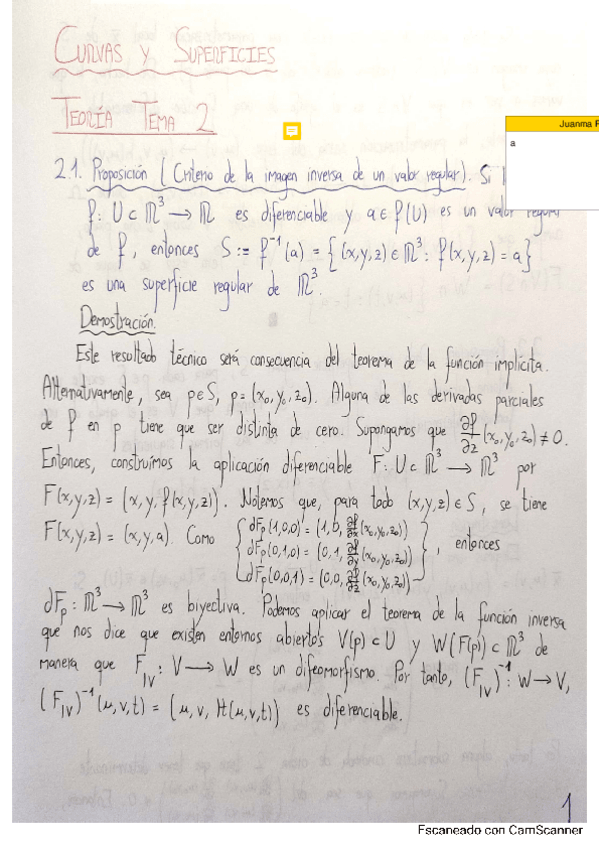 CURVAS Y SUPERFICIES
TEORÍA TEMA 2
Juanma
a
2.1. Proposición (Criterio de la imagen inversa de un valor regular). Si
f: U ⊂ ℝ³ → ℝ es diferenciable y a ∈ f(U) es un valor
de f, entonces S := f⁻¹(a) = {(x,y,z) ∈ ℝ³ : f(x,y,z) = a}
es una superficie regular de ℝ³.
Demostración.
Este resultado técnico será consecuencia del teorema de la función implícita.
Alternativamente, sea p∈S, p = (x₀,y₀,z₀). Alguna de las derivadas parciales
de f en p tiene que ser distinta de cero. Supongamos que ∂f/∂z (x₀,y₀,z₀) ≠ 0.
Entonces, construímos la aplicación diferenciable F: U ⊂ ℝ³ → ℝ³ por
F(x,y,z) = (x, y, f(x,y,z)). Notemos que, para todo (x,y,z) ∈ S, se tiene
F(x,y,z) = (x,y,a). Como { dFₚ(1,0,0) = (1,0, ∂f/∂x (x₀,y₀,z₀))
dFₚ(0,1,0) = (0,1, ∂f/∂y (x₀,y₀,z₀))
dFₚ(0,0,1) = (0,0, ∂f/∂z (x₀,y₀,z₀)) }, entonces
dFₚ: ℝ³ → ℝ³ es biyectiva. Podemos aplicar el teorema de la función inversa
que nos dice que existen entornos abiertos V(p) ⊂ U y W(F(p)) ⊂ ℝ³ de
manera que F|V : V → W es un difeomorfismo. Por tanto, (F|V)⁻¹: W → V,
(F|V)⁻¹(u,v,t) = (u, v, H(u,v,t)) es diferenciable.
1
Escaneado con CamScanner